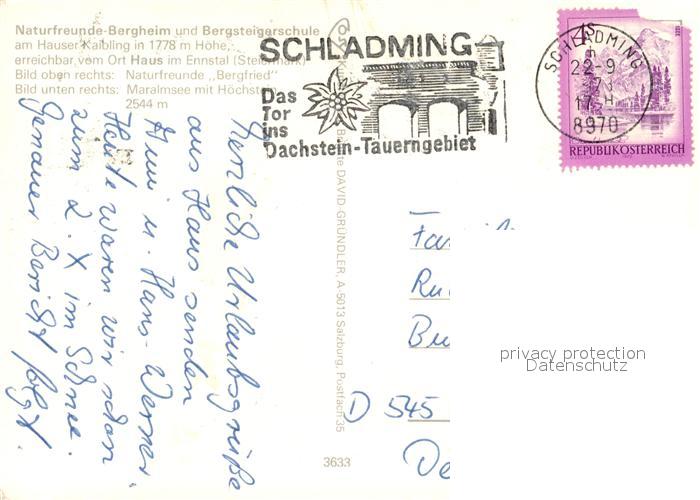 Naturfreunde-Bergheim und Bergsteigerschule
am Hauser Kaibling in 1778 m Höhe,
erreichbar vom Ort Haus im Ennstal (Steiermark)
Bild oben rechts: Naturfreunde „Bergfried"
Bild unten rechts: Maralmsee mit Höchstein
2544 m
SCHLADMING
Das
Tor
ins
Dachstein-Tauerngebiet
SCHLADMING
22-9
8970
REPUBLIK ÖSTERREICH
Herzliche Urlaubsgrüße
aus Haus senden
u. Hans-Werner.
Heute waren wir schon
zum 2. X im Schnee.
Genauer Bericht folgt.
DAVID GRÜNDLER, A-5013 Salzburg, Postfach 35
Fa
Ru
D 545
3633
privacy protection
Datenschutz